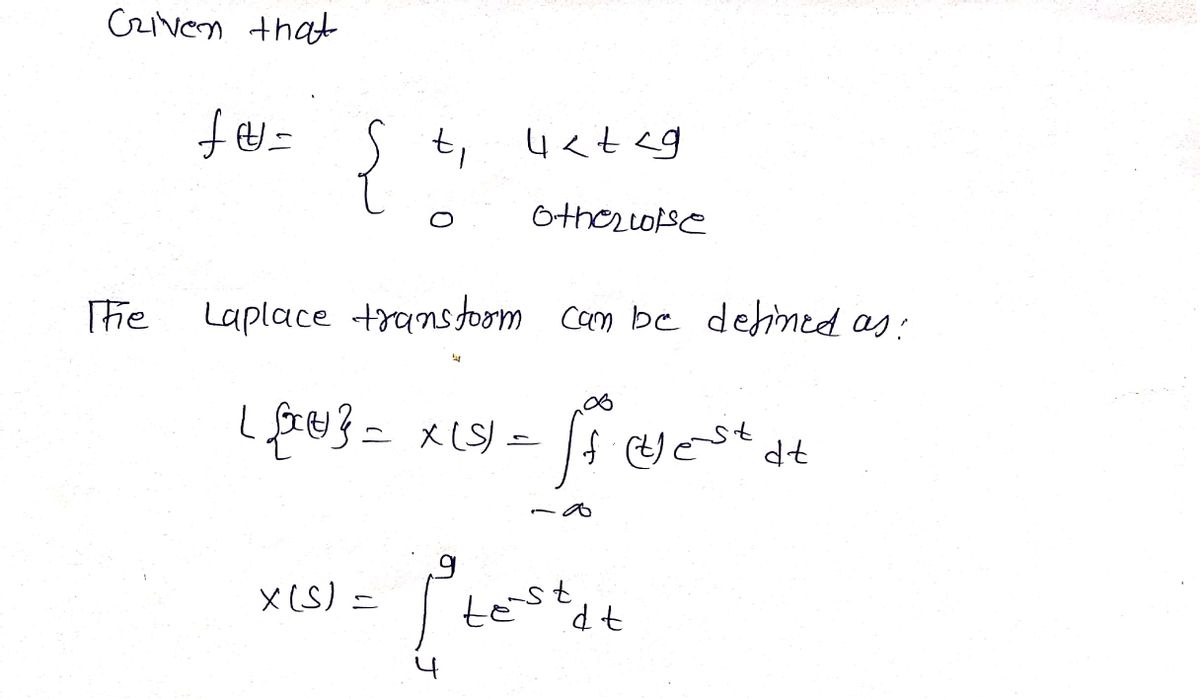 Given that
f(t) = { t, 4 < t < 9
0 otherwise
The Laplace transform can be defined as:
L{x(t)} = X(S) = ∫_{-∞}^{∞} f(t) e^{-st} dt
X(S) = ∫_{4}^{9} t e^{-st} dt